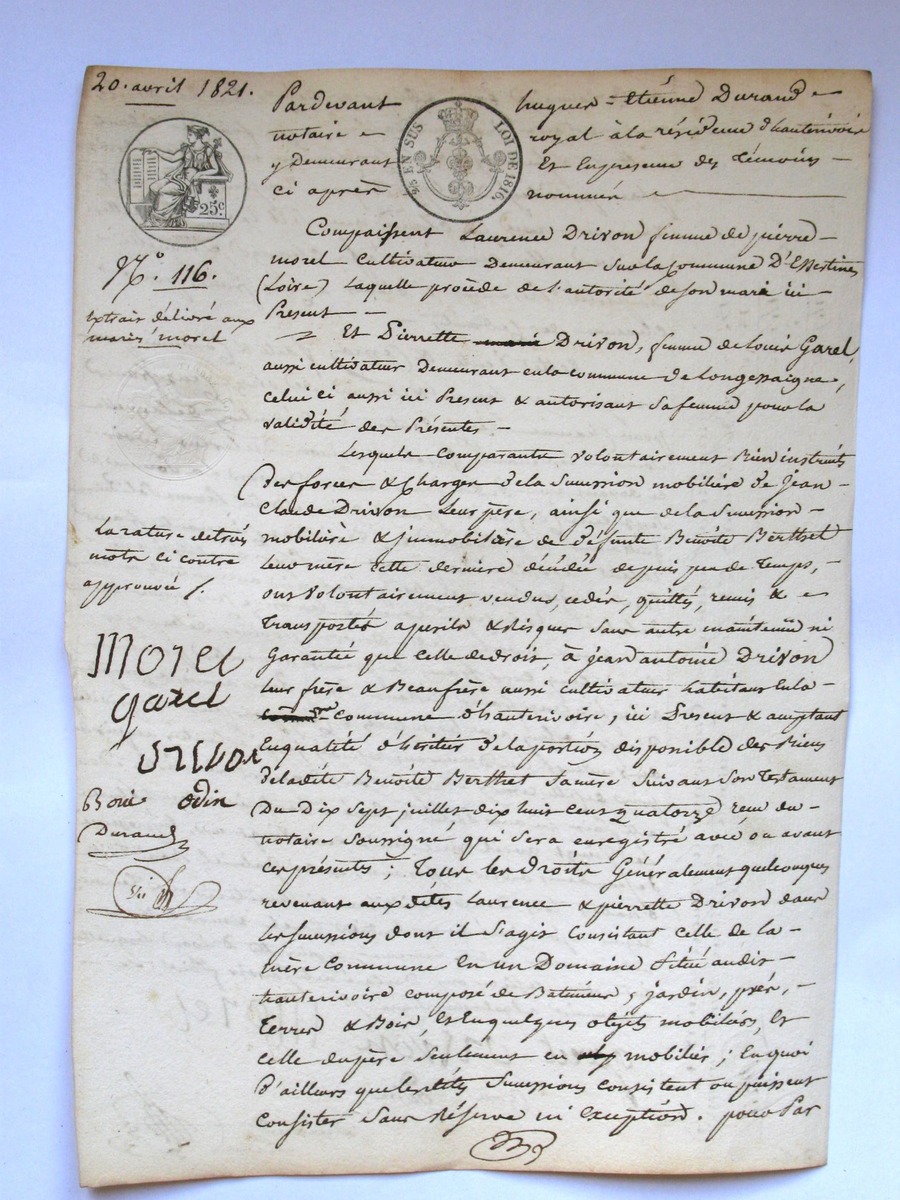 20. avril 1821.
Pardevant hugues = Etiénne Durand
notaire royal à la résidence d'hauterivoire
y Demeurant Et En presence des témoins
ci après nommés
EN SUS LOI DE 1816.
25c
N.o 116.
Extrait délivré aux
mariés morel
Comparaissent Laurence Drivon femme de pierre
morel Cultivateur Demeurant sur la commune D'Essertines
(Loire) Laquelle procède de l'autorité de son mari ici
Present
Et Pierrette Drivon, femme de louis Garel,
aussi cultivateur Demeurant en la commune de Longessaigne,
celui ci aussi ici Present & autorisant sa femme pour la
validité des Présentes
Lesquels comparants volontairement Bien instruits
Des forces & Charges de la Succession mobilière de Jean
Claude Drivon Leur père, ainsi que de la Succession
mobilière & jmmobilière de défunte Benoite Berthet
leur mère cette dernière décédée depuis peu de temps,
ont Volontairement vendus, cedés, quittés, remis &
Transportés a perils & Risques Sans autre maintenue ni
Garantie que celle de droit, à jean antoine Drivon
Leur frère & Beaufrère aussi cultivateur habitant En la
commune d'hauterivoire, ici Present & acceptant
En qualité d'héritier de la portion disponible des Biens
de ladite Benoite Berthet Sa mère Suivant Son testament
Du Dix Sept juillet dix huit cent quatorze recu du
notaire soussigné qui sera enregistré avec ou avant
ces présentes; Tous les droits Généralement quelconques
revenant auxdites Laurence & pierrette Drivon dans
les successions dont il s'agit Consistant celle de la
mère Commune En un Domaine Situé audit
hauterivoire composé de Batiments, jardin, prés,
Terres & Bois, et En quelques objets mobiliers, Et
celle du père Seulement en mobilier; En quoi
D'ailleurs que lesdites Successions consistent ou puissent
consister Sans Réserve ni Exception. pour Par
La rature de trois
mots ci contre
approuvée
Morel
garel
drivon
Odin
Durand